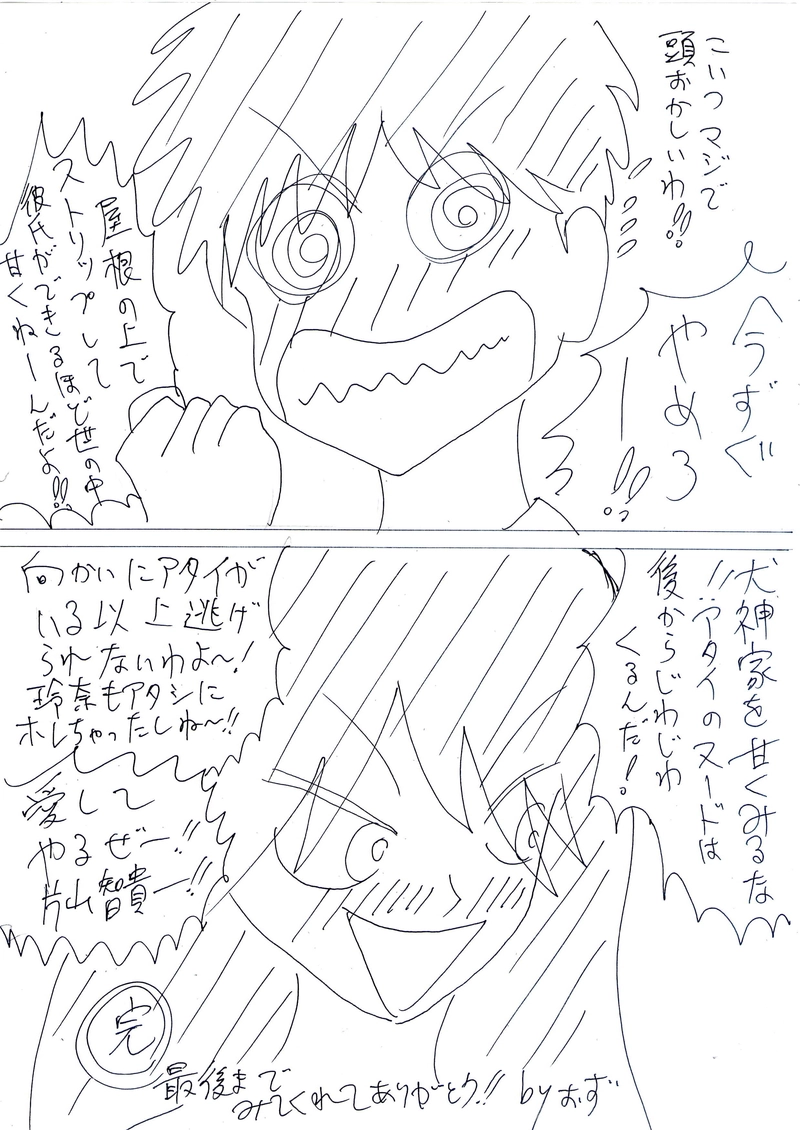 こいつマジで
頭おかしいわ!!
今すぐ
やめろ
ー!!
屋根の上で
ストリップして
彼氏ができるほど世の中
甘くねーんだよ!!
犬神家を甘くみるな
!!アタイのヌードは
後からじわじわ
くるんだ!
向かいにアタイが
いる以上逃げ
られないわよ〜!
玲奈もアタシに
ホレちゃったしね〜!!
愛して
やるぜー!!
片山智貴ー!!
完
最後まで
みてくれてありがとう!! byおず